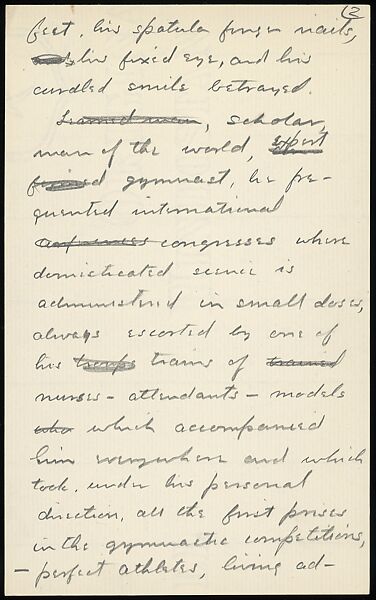 2
feet, his spatula finger nails,
his fixed eye, and his
curdled smile betrayed.
Learned man, scholar,
man of the world, expert
gymnast, he fre-
quented international
conferences congresses where
domesticated scenic is
administered in small doses,
always escorted by one of
his troops trams of trained
nurses - attendants - models
who which accompanied
him everywhere and which
took, under his personal
direction, all the first prises
in the gymnastic competitions,
- perfect athletes, living ad-